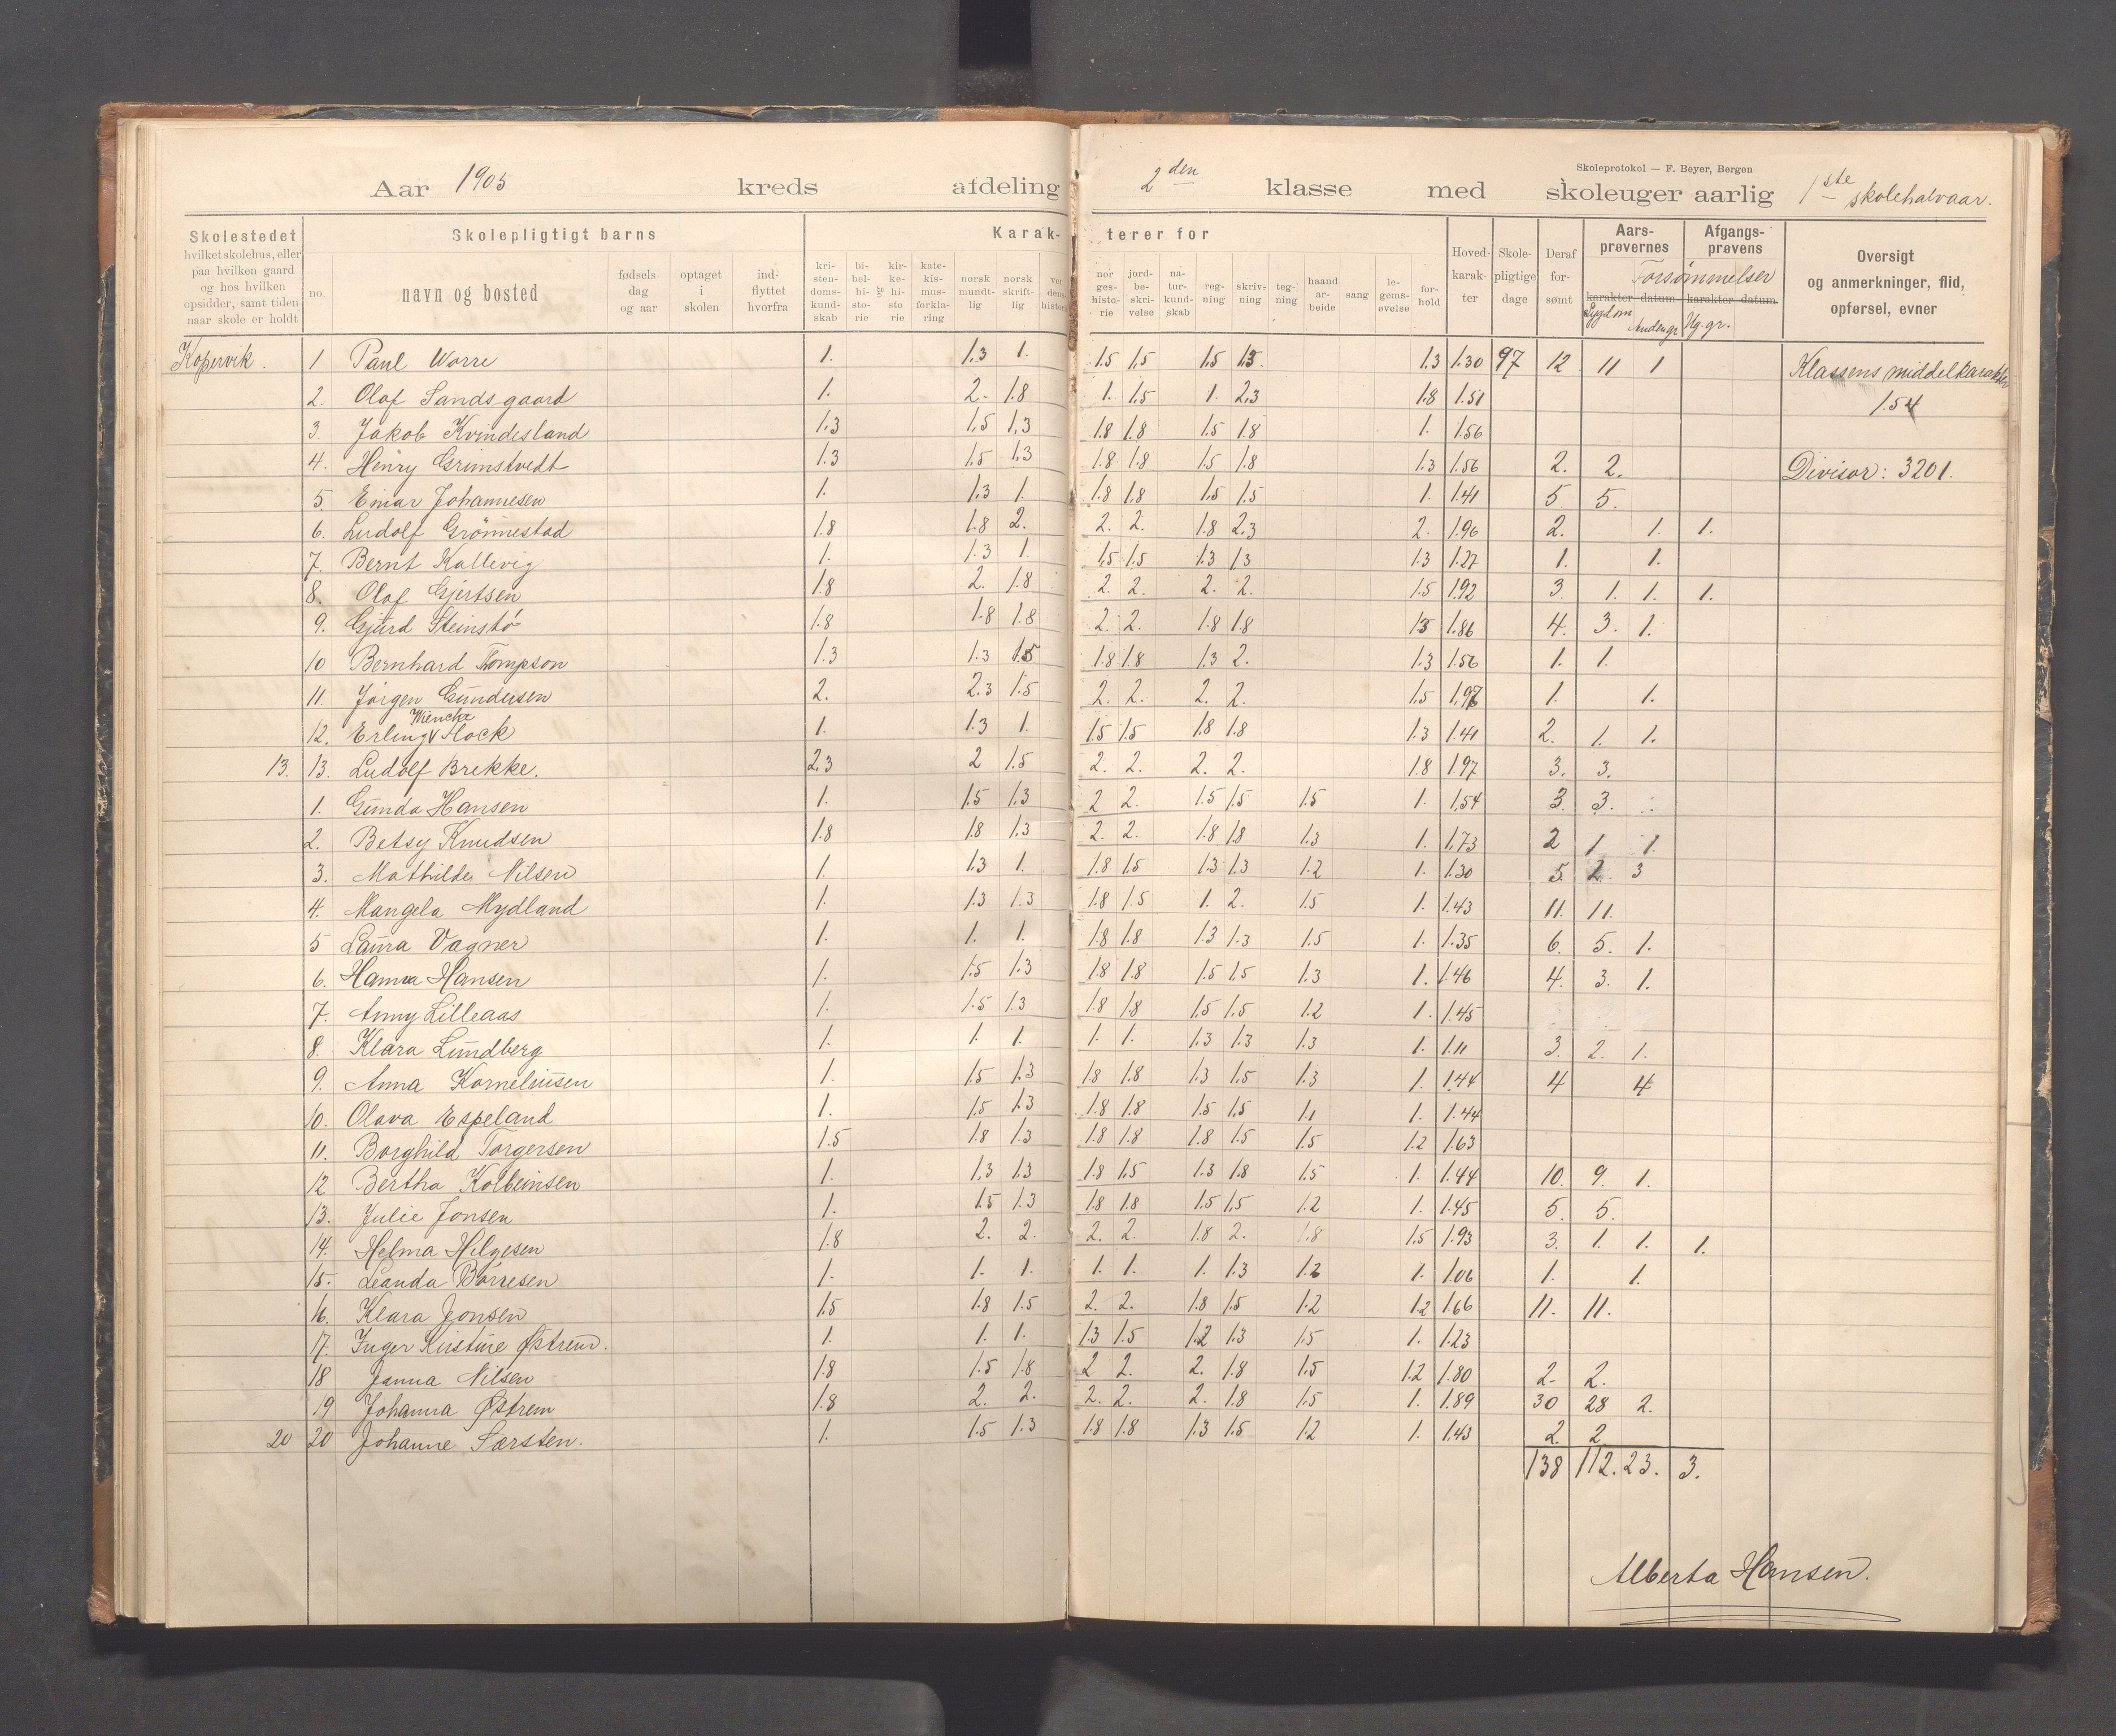 Skoleprotokol — F. Beyer, Bergen
Aar 1905 kreds afdeling 2den klasse med skoleuger aarlig 1ste skolehalvaar.
Skolestedet
hvilket skolehus, eller
paa hvilken gaard
og hos hvilken
opsidder, samt tiden
naar skole er holdt
Skolepligtigt barns
no.
navn og bosted
fødsels-
dag
og aar
optaget
i
skolen
ind-
flyttet
hvorfra
Karak-
terer for
kri-
sten-
doms-
kund-
skab
bi-
bel-
hi-
sto-
rie
kir-
ke-
hi-
sto
rie
kate-
kis-
mus-
forkla-
ring
norsk
mundt-
lig
norsk
skrift-
lig
ver
dens-
histori
nor
ges-
histo-
rie
jord-
be-
skri-
velse
na-
tur-
kund-
skab
reg-
ning
skriv-
ning
teg-
ning
haand
ar-
beide
sang
le-
gems-
øvelse
for-
hold
Hoved-
karak-
ter
Skole-
pligtige
dage
Deraf
for-
sømt
Aars-
prøvernes
Afgangs-
prøvens
Forsømmelser
karakter datum karakter datum
Sygdom Andengr. Ug. gr.
Oversigt
og anmerkninger, flid,
opførsel, evner
Kopervik. 1 Paul Worre 1. 1.3 1. 1.5 1.5 1.5 1.5 1.3 1.30 97 12 11 1 Klassens middelkarakter
2. Olaf Sandsgaard 1. 2. 1.8 1. 1.5 1. 2.3 1.8 1.51 1.54
3. Jakob Kvindesland 1.3 1.5 1.3 1.8 1.8 1.5 1.8 1. 1.56
4. Henry Grimstvedt 1.3 1.5 1.3 1.8 1.8 1.5 1.8 1.3 1.56 2. 2. Divisor: 3201.
5. Einar Johannesen 1. 1.3 1. 1.8 1.8 1.5 1.5 1. 1.41 5. 5.
6. Ludolf Grönnestad 1.8 1.8 2. 2. 2. 1.8 2.3 2. 1.96 2. 1. 1.
7. Bernt Kallevig 1. 1.3 1. 1.5 1.5 1.3 1.3 1.3 1.27 1. 1.
8. Olaf Gjertsen 1.8 2. 1.8 2. 2. 2. 2. 1.5 1.92 3. 1. 1. 1.
9. Gjurd Steinstö 1.8 1.8 1.8 2. 2. 1.8 1.8 1.5 1.86 4. 3. 1.
10 Bernhard Tompson 1.3 1.3 1.5 1.8 1.8 1.3 2. 1.3 1.56 1. 1.
11. Jörgen Gundersen 2. 2.3 1.5 2. 2. 2. 2. 1.5 1.97 1. 1.
12. Erling Wiencke Flock 1. 1.3 1. 1.5 1.5 1.8 1.8 1.3 1.41 2. 1. 1.
13. 13. Ludolf Brekke. 2.3 2 1.5 2. 2. 2. 2. 1.8 1.97 3. 3.
1. Gunda Hansen 1. 1.5 1.3 2 2. 1.5 1.5 1.5 1. 1.54 3. 3.
2. Betsy Knudsen 1.8 1.8 1.3 2. 2. 1.8 1.8 1.3 1. 1.73 2 1. 1.
3. Mathilde Nilsen 1. 1.3 1. 1.8 1.5 1.3 1.3 1.2 1. 1.30 5. 2. 3
4. Mangela Mydland 1. 1.3 1.3 1.8 1.5 1. 2. 1.5 1. 1.43 11. 11.
5 Laura Vagner 1. 1. 1. 1.8 1.8 1.3 1.3 1.5 1. 1.35 6. 5. 1.
6. Hanna Hansen 1. 1.5 1.3 1.8 1.8 1.5 1.5 1.3 1. 1.46 4. 3. 1.
7. Anny Lilleaas 1. 1.5 1.3 1.8 1.8 1.5 1.5 1.2 1. 1.45
8. Klara Lundberg 1. 1. 1. 1. 1. 1.3 1.3 1.3 1. 1.11 3. 2. 1.
9. Anna Korneliusen 1. 1.5 1.3 1.8 1.8 1.3 1.5 1.3 1. 1.44 4 4
10. Olava Espeland 1. 1.5 1.3 1.8 1.8 1.5 1.5 1.1 1. 1.44
11. Borghild Torgersen 1.5 1.8 1.3 1.8 1.8 1.8 1.5 1.5 1.2 1.63
12 Bertha Kolbeinsen 1. 1.3 1.3 1.8 1.5 1.3 1.8 1.5 1. 1.44 10. 9. 1.
13. Julie Jonsen 1. 1.5 1.3 1.8 1.8 1.5 1.5 1.2 1. 1.45 5. 5.
14. Helma Helgesen 1.8 2. 2. 2. 2. 1.8 2. 1.8 1.5 1.93 3. 1. 1. 1.
15. Leanda Børresen 1. 1. 1. 1. 1. 1. 1.3 1.2 1. 1.06 1. 1.
16. Klara Jonsen 1.5 1.8 1.5 2. 2. 1.8 1.5 1.2 1.2 1.66 11. 11.
17. Inger Kirstine Østrem. 1. 1. 1. 1.3 1.5 1.2 1.3 1.5 1. 1.23
18 Janna Nilsen 1.8 1.5 1.8 2 2. 2. 1.8 1.5 1.2 1.80 2. 2.
19 Johanna Østrem 1.8 2. 2. 2. 2. 2. 1.8 1.5 1. 1.89 30 28 2.
20 20 Johanne Sørsten. 1. 1.5 1.3 1.8 1.8 1.3 1.5 1.2 1. 1.43 2. 2
138 112. 23. 3.
Alberta Hansen.